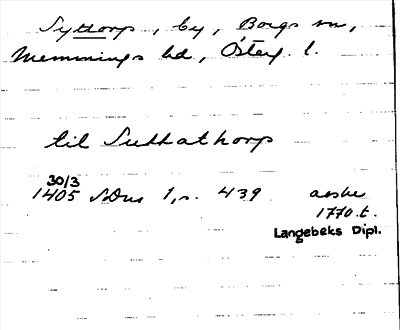 Syttorp, by, Borgs sn,
Memmings hd, Österg. l.
til Sutthathorp
30/3
1405 SDns 1, s. 439 avskr
1770.t.
Langebeks Dipl.